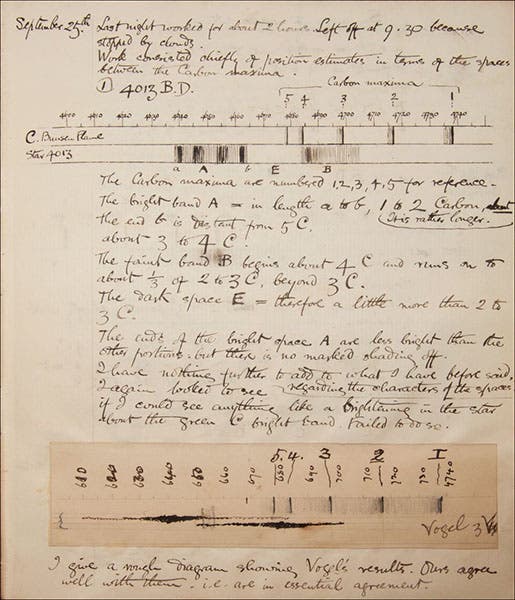 September 25th Last night worked for about 2 hours. Left off at 9.30 because
stopped by clouds.
Work consisted chiefly of position estimates in terms of the spaces
between the Carbon maxima.
① 4013 B.D.
Carbon maxima
5 4 3 2 1
C. Bunsen Flame
Star 4013
a A b E B
The Carbon maxima are numbered 1, 2, 3, 4, 5 for reference.
The bright band A = in length a to b, 1 to 2 Carbon,
It is rather longer.
the end b is distant from 5 C.
about 3 to 4 C
The faint band B begins about 4 C and runs on to
about 1/3 of 2 to 3 C, beyond 3 C.
The dark space E = therefore a little more than 2 to
3 C.
The ends of the bright space A are less bright than the
other portions. but there is no marked shading off.
I have nothing further to add to what I have before said,
regarding the characters of the spaces
I again looked to see
if I could see anything like a brightening in the star
about the green C bright band. Failed to do so.
5. 4. 3 2 1
660 670 680 690 700 710 720 730 4740
Vogel
I give a rough diagram showing Vogel's results. Ours agree
well with them. i.e. are in essential agreement.